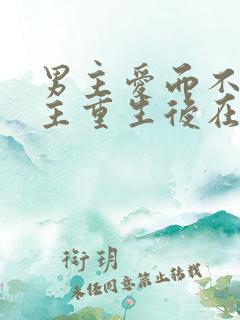 男主愛而不
主重生後在
衔玥
未经同意禁止转载